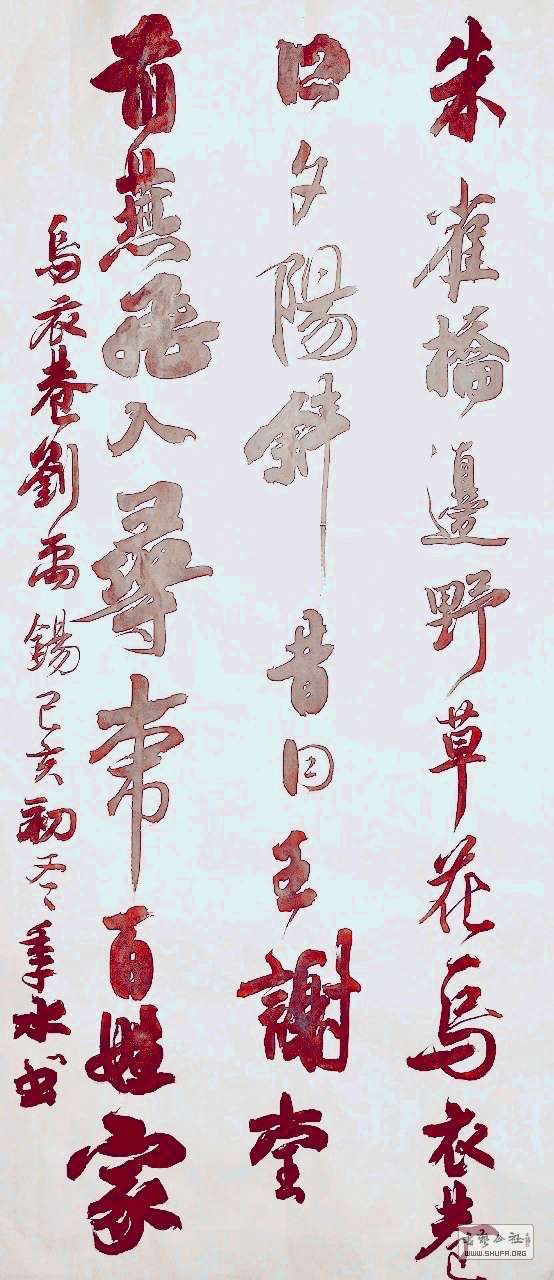 朱雀橋邊野草花烏衣巷
口夕陽斜昔日王謝堂
前燕飛入尋常百姓家
烏衣巷劉禹錫己亥初冬季永书
WWW.SHUFA.ORG